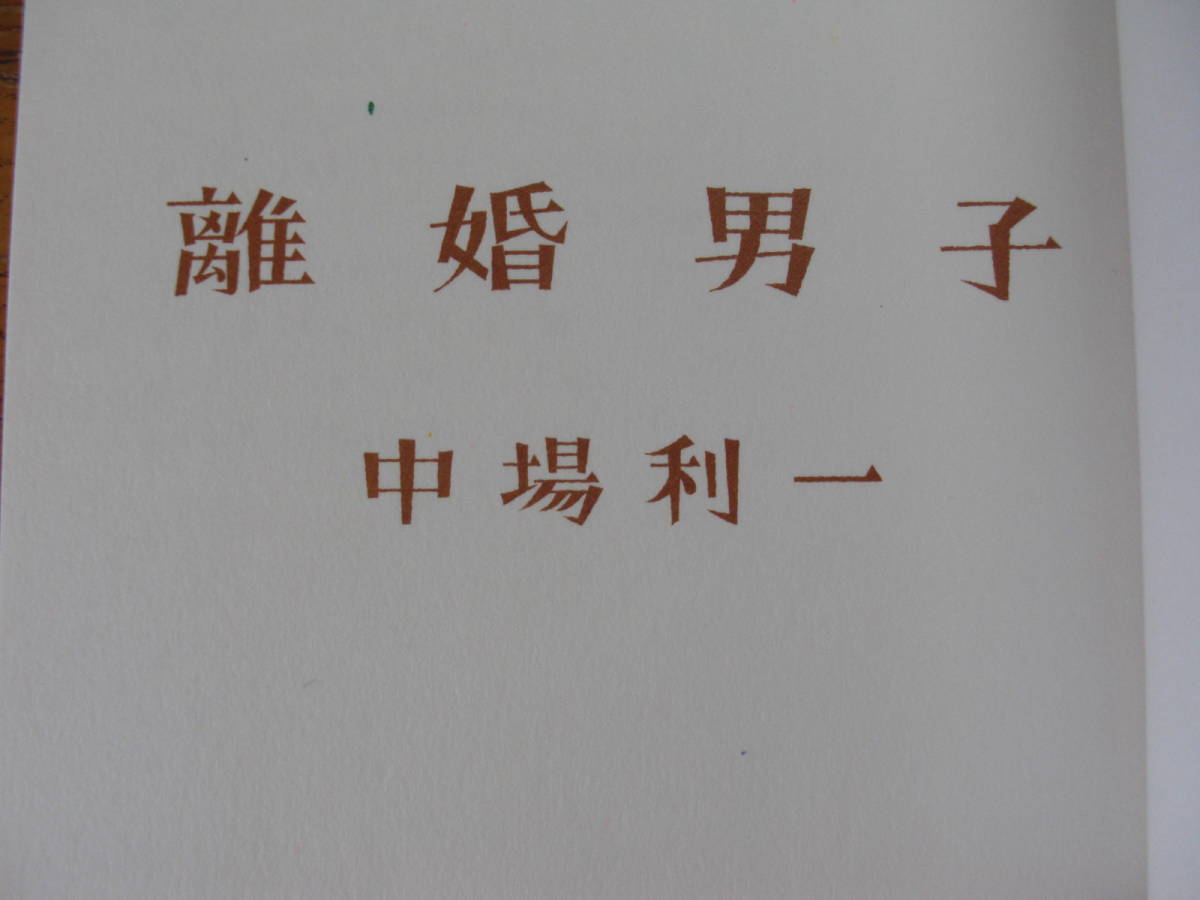 離婚男子
中場利一